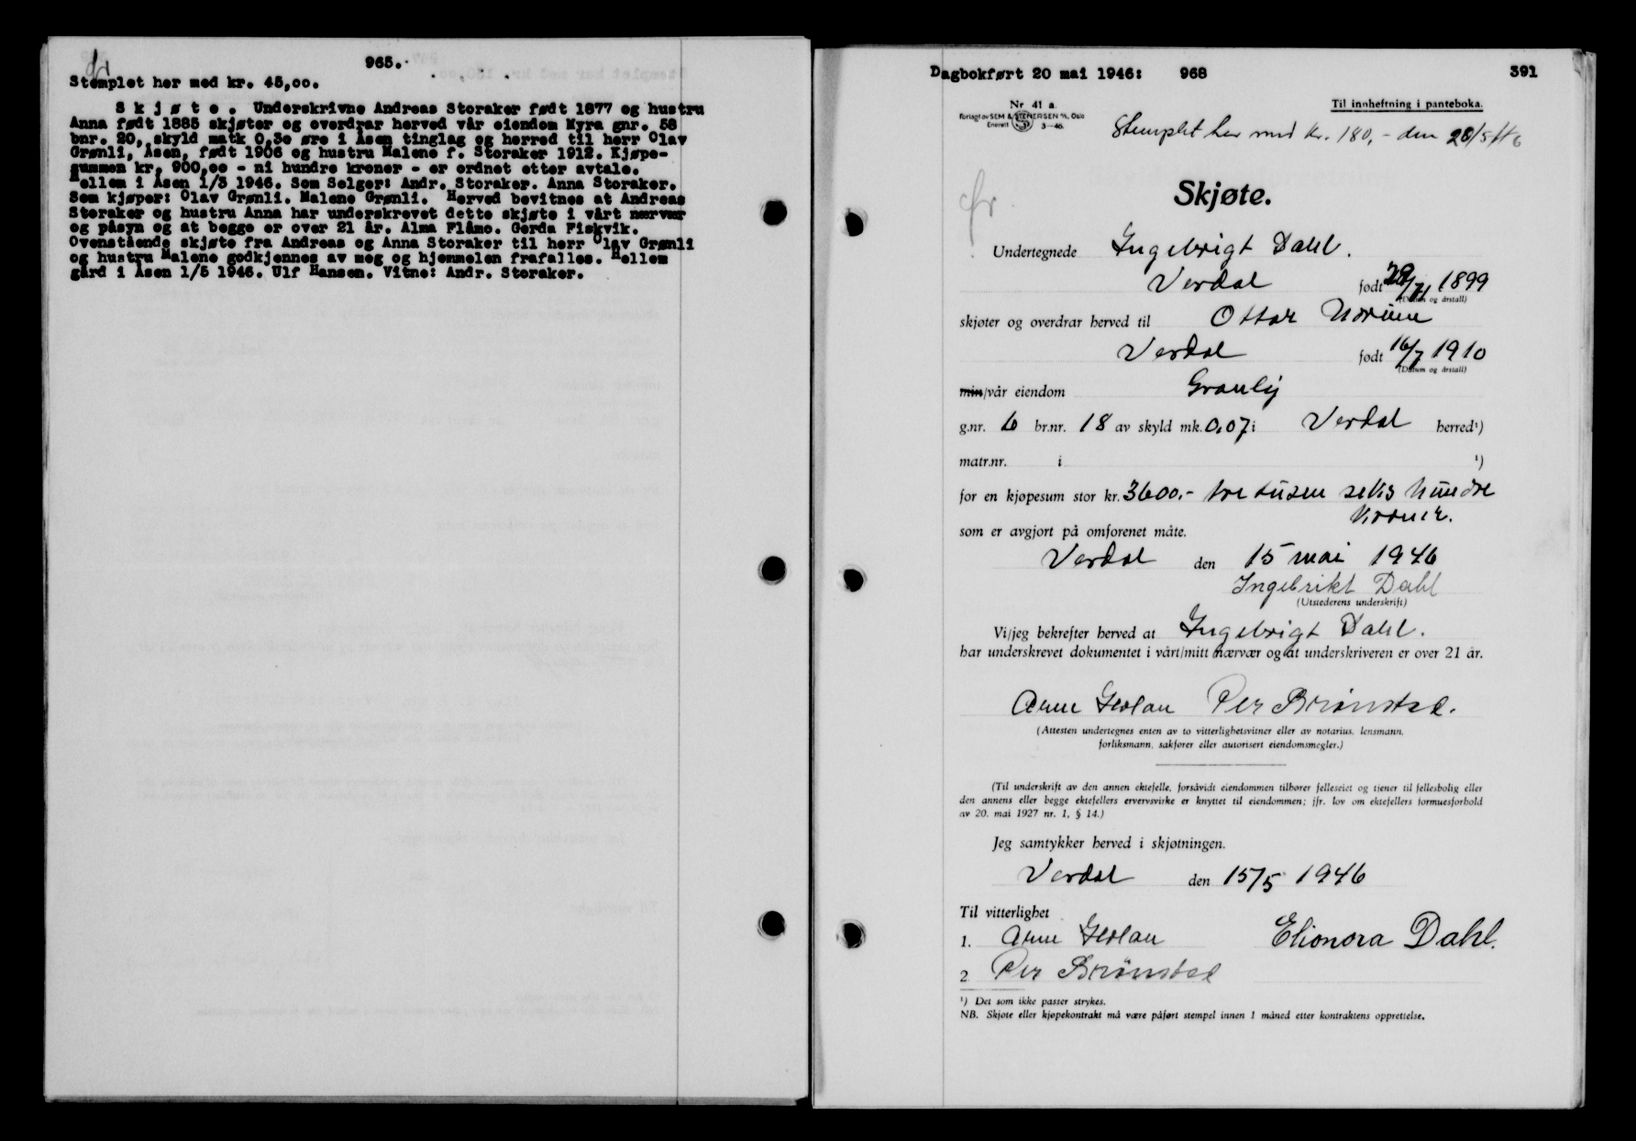 965.
Stemplet her med kr. 45,oo.
S k j ø t e . Underskrivne Andreas Storaker født 1877 og hustru
Anna født 1885 skjøter og overdrar herved vår eiendom Myra gnr. 58
bnr. 20, skyld matk 0,3o øre i Åsen tinglag og herred til herr Olav
Grønli, Åsen, født 1906 og hustru Malene f. Storaker 1912. Kjøpe-
summen kr. 900,oo - ni hundre kroner - er ordnet etter avtale.
Mellem i Åsen 1/5 1946. Som Selger: Andr. Storaker. Anna Storaker.
Som kjøper: Olav Grønli. Malene Grønli. Herved bevitnes at Andreas
Storaker og hustru Anna har underskrevet dette skjøte i vårt nærvær
og påsyn og at begge er over 21 år. Alma Flåmo. Gerda Fiskvik.
Ovenstående skjøte fra Andreas og Anna Storaker til herr Olav Grønli
og hustru Malene godkjennes av meg og hjemmelen frafalles. Mellem
gård i Åsen 1/5 1946. Ulf Hansen. Vitne: Andr. Storaker.
Dagbokført 20 mai 1946: 968 391
Nr 41 a
Forlagt av SEM & STENERSEN A/S, Oslo
Enerett 3-46
Til innheftning i panteboka.
Stemplet her med kr. 180,- den 20/5 46
Skjøte.
Undertegnede Ingebrigt Dahl.
Verdal født 29/11 1899
(Datum og årstall)
skjøter og overdrar herved til Ottar
Verdal født 16/7 1910
(Datum og årstall)
min/vår eiendom Granly
g.nr. 6 br.nr. 18 av skyld mk. 0,07 i Verdal herred¹)
matr.nr. i ¹)
for en kjøpesum stor kr. 3600.- tre tusen seks hundre
kroner.
som er avgjort på omforenet måte.
Verdal den 15 mai 1946
Ingebrikt Dahl
(Utstederens underskrift)
Vi/jeg bekrefter herved at Ingebrigt Dahl.
har underskrevet dokumentet i vårt/mitt nærvær og at underskriveren er over 21 år.
Per Brønstad.
(Attesten undertegnes enten av to vitterlighetsvitner eller av notarius, lensmann,
forliksmann, sakfører eller autorisert eiendomsmegler.)
(Til underskrift av den annen ektefelle, forsåvidt eiendommen tilhører felleseiet og tjener til fellesbolig eller
den annens eller begge ektefellers ervervsvirke er knyttet til eiendommen; jfr. lov om ektefellers formuesforhold
av 20. mai 1927 nr. 1, § 14.)
Jeg samtykker herved i skjøtningen.
Verdal den 15/5 1946
Til vitterlighet
1. Elionora Dahl.
2. Per Brønstad
¹) Det som ikke passer strykes.
NB. Skjøte eller kjøpekontrakt må være påført stempel innen 1 måned etter kontraktens opprettelse.